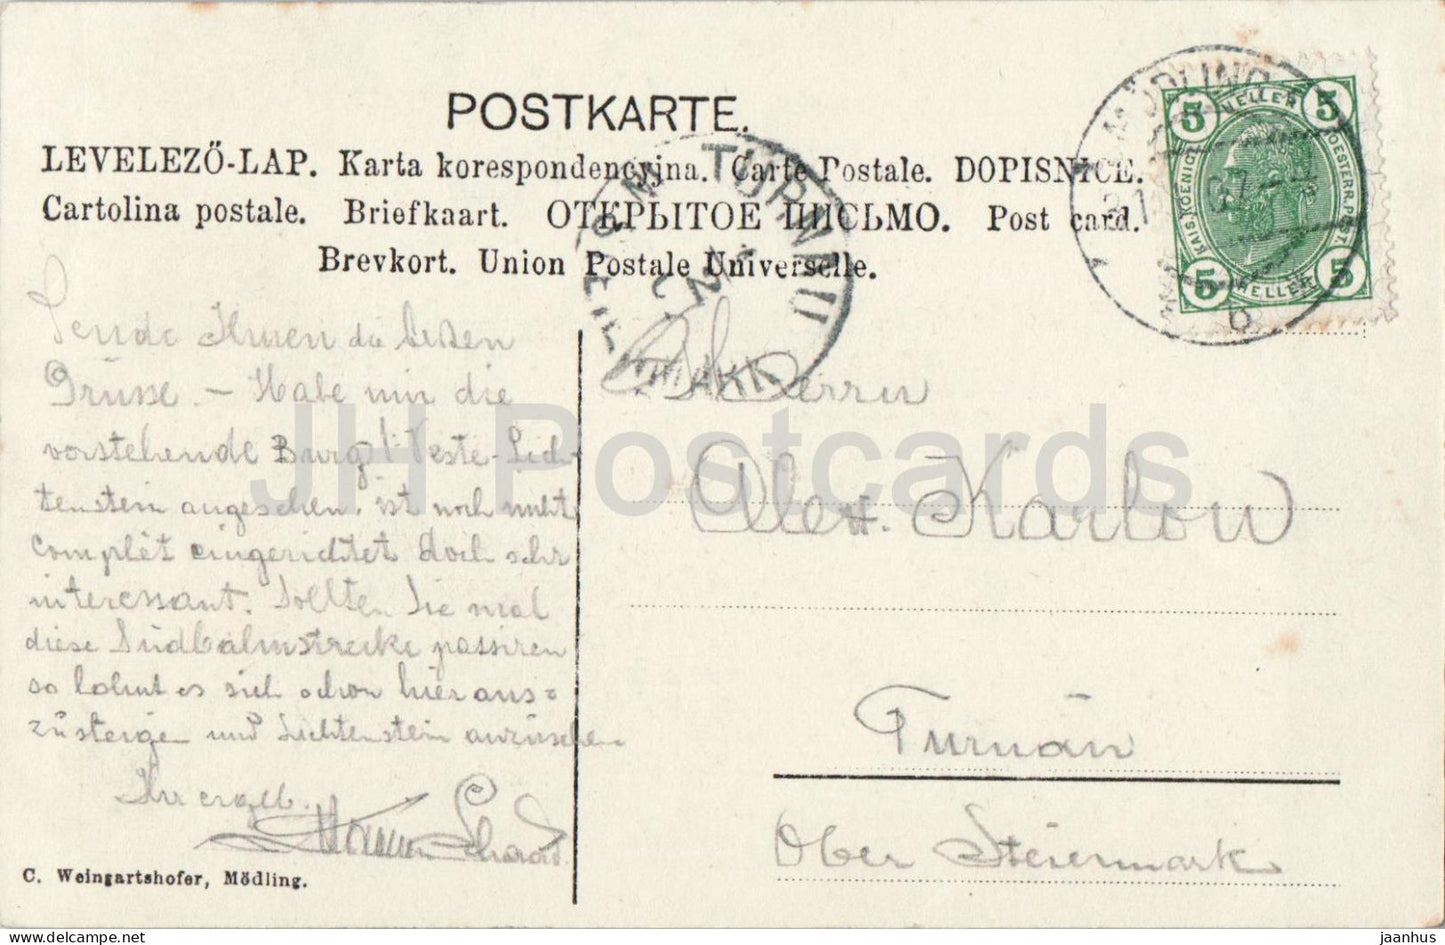 POSTKARTE.
LEVELEZŐ-LAP. Karta korespondencyjna. Carte Postale. DOPISNICE.
Cartolina postale. Briefkaart. ОТКРЫТОЕ ПИСЬМО. Post card.
Brevkort. Union Postale Universelle.
MÖDLING
5 HELLER 5
KAIS. KOENIGL. OESTERR. POST.
5 HELLER 5
TURNAU
Sende Ihnen die besten
Grüsse. – Habe mir die
vorstehende Burg Veste-Lich-
tenstein angesehen. ist noch nicht
complèt eingerichtet doch sehr
interessant. Sollten Sie mal
diese Südbahnstrecke passiren
so lohnt es sich schon hier aus=
zusteigen und Lichtenstein anzusehen
Ihr ergeb.
Herrn
Alex. Karlow
Turnau
Ober Steiermark
C. Weingartshofer, Mödling.
JH Postcards
www.delcampe.net
jaanhus